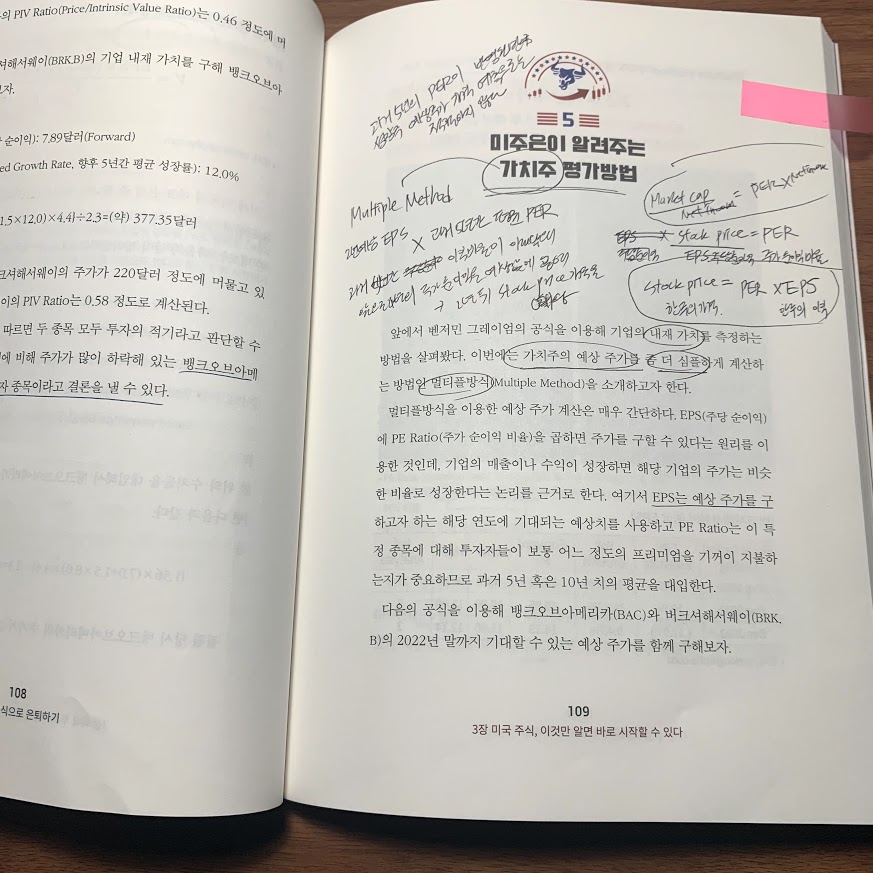 의 PIV Ratio(Price/Intrinsic Value Ratio)는 0.46 정도에 머
셔해서웨이(BRK.B)의 기업 내재 가치를 구해 뱅크오브아
자.
순이익): 7.89달러(Forward)
ed Growth Rate, 향후 5년간 평균 성장률): 12.0%
1.5×12.0)×4.4}÷2.3=(약) 377.35달러
크셔해서웨이의 주가가 220달러 정도에 머물고 있
이의 PIV Ratio는 0.58 정도로 계산된다.
따르면 두 종목 모두 투자의 적기라고 판단할 수
에 비해 주가가 많이 하락해 있는 뱅크오브아메
자 종목이라고 결론을 낼 수 있다.
108
식으로 은퇴하기
과거 5년의 PER이
5
미주은이 알려주는
가치주 평가방법
Multiple Method
EPS × PER
Stock price
Market cap = PER × Net Income
Net Income
EPS × Stock price = PER
Stock price = PER × EPS
한주의 가격 한주의 이익
앞에서 벤저민 그레이엄의 공식을 이용해 기업의 내재 가치를 측정하는
방법을 살펴봤다. 이번에는 가치주의 예상 주가를 좀 더 심플하게 계산하
는 방법인 멀티플방식(Multiple Method)을 소개하고자 한다.
멀티플방식을 이용한 예상 주가 계산은 매우 간단하다. EPS(주당 순이익)
에 PE Ratio(주가 순이익 비율)을 곱하면 주가를 구할 수 있다는 원리를 이
용한 것인데, 기업의 매출이나 수익이 성장하면 해당 기업의 주가는 비슷
한 비율로 성장한다는 논리를 근거로 한다. 여기서 EPS는 예상 주가를 구
하고자 하는 해당 연도에 기대되는 예상치를 사용하고 PE Ratio는 이 특
정 종목에 대해 투자자들이 보통 어느 정도의 프리미엄을 기꺼이 지불하
는지가 중요하므로 과거 5년 혹은 10년 치의 평균을 대입한다.
다음의 공식을 이용해 뱅크오브아메리카(BAC)와 버크셔해서웨이(BRK.
B)의 2022년 말까지 기대할 수 있는 예상 주가를 함께 구해보자.
109
3장 미국 주식, 이것만 알면 바로 시작할 수 있다